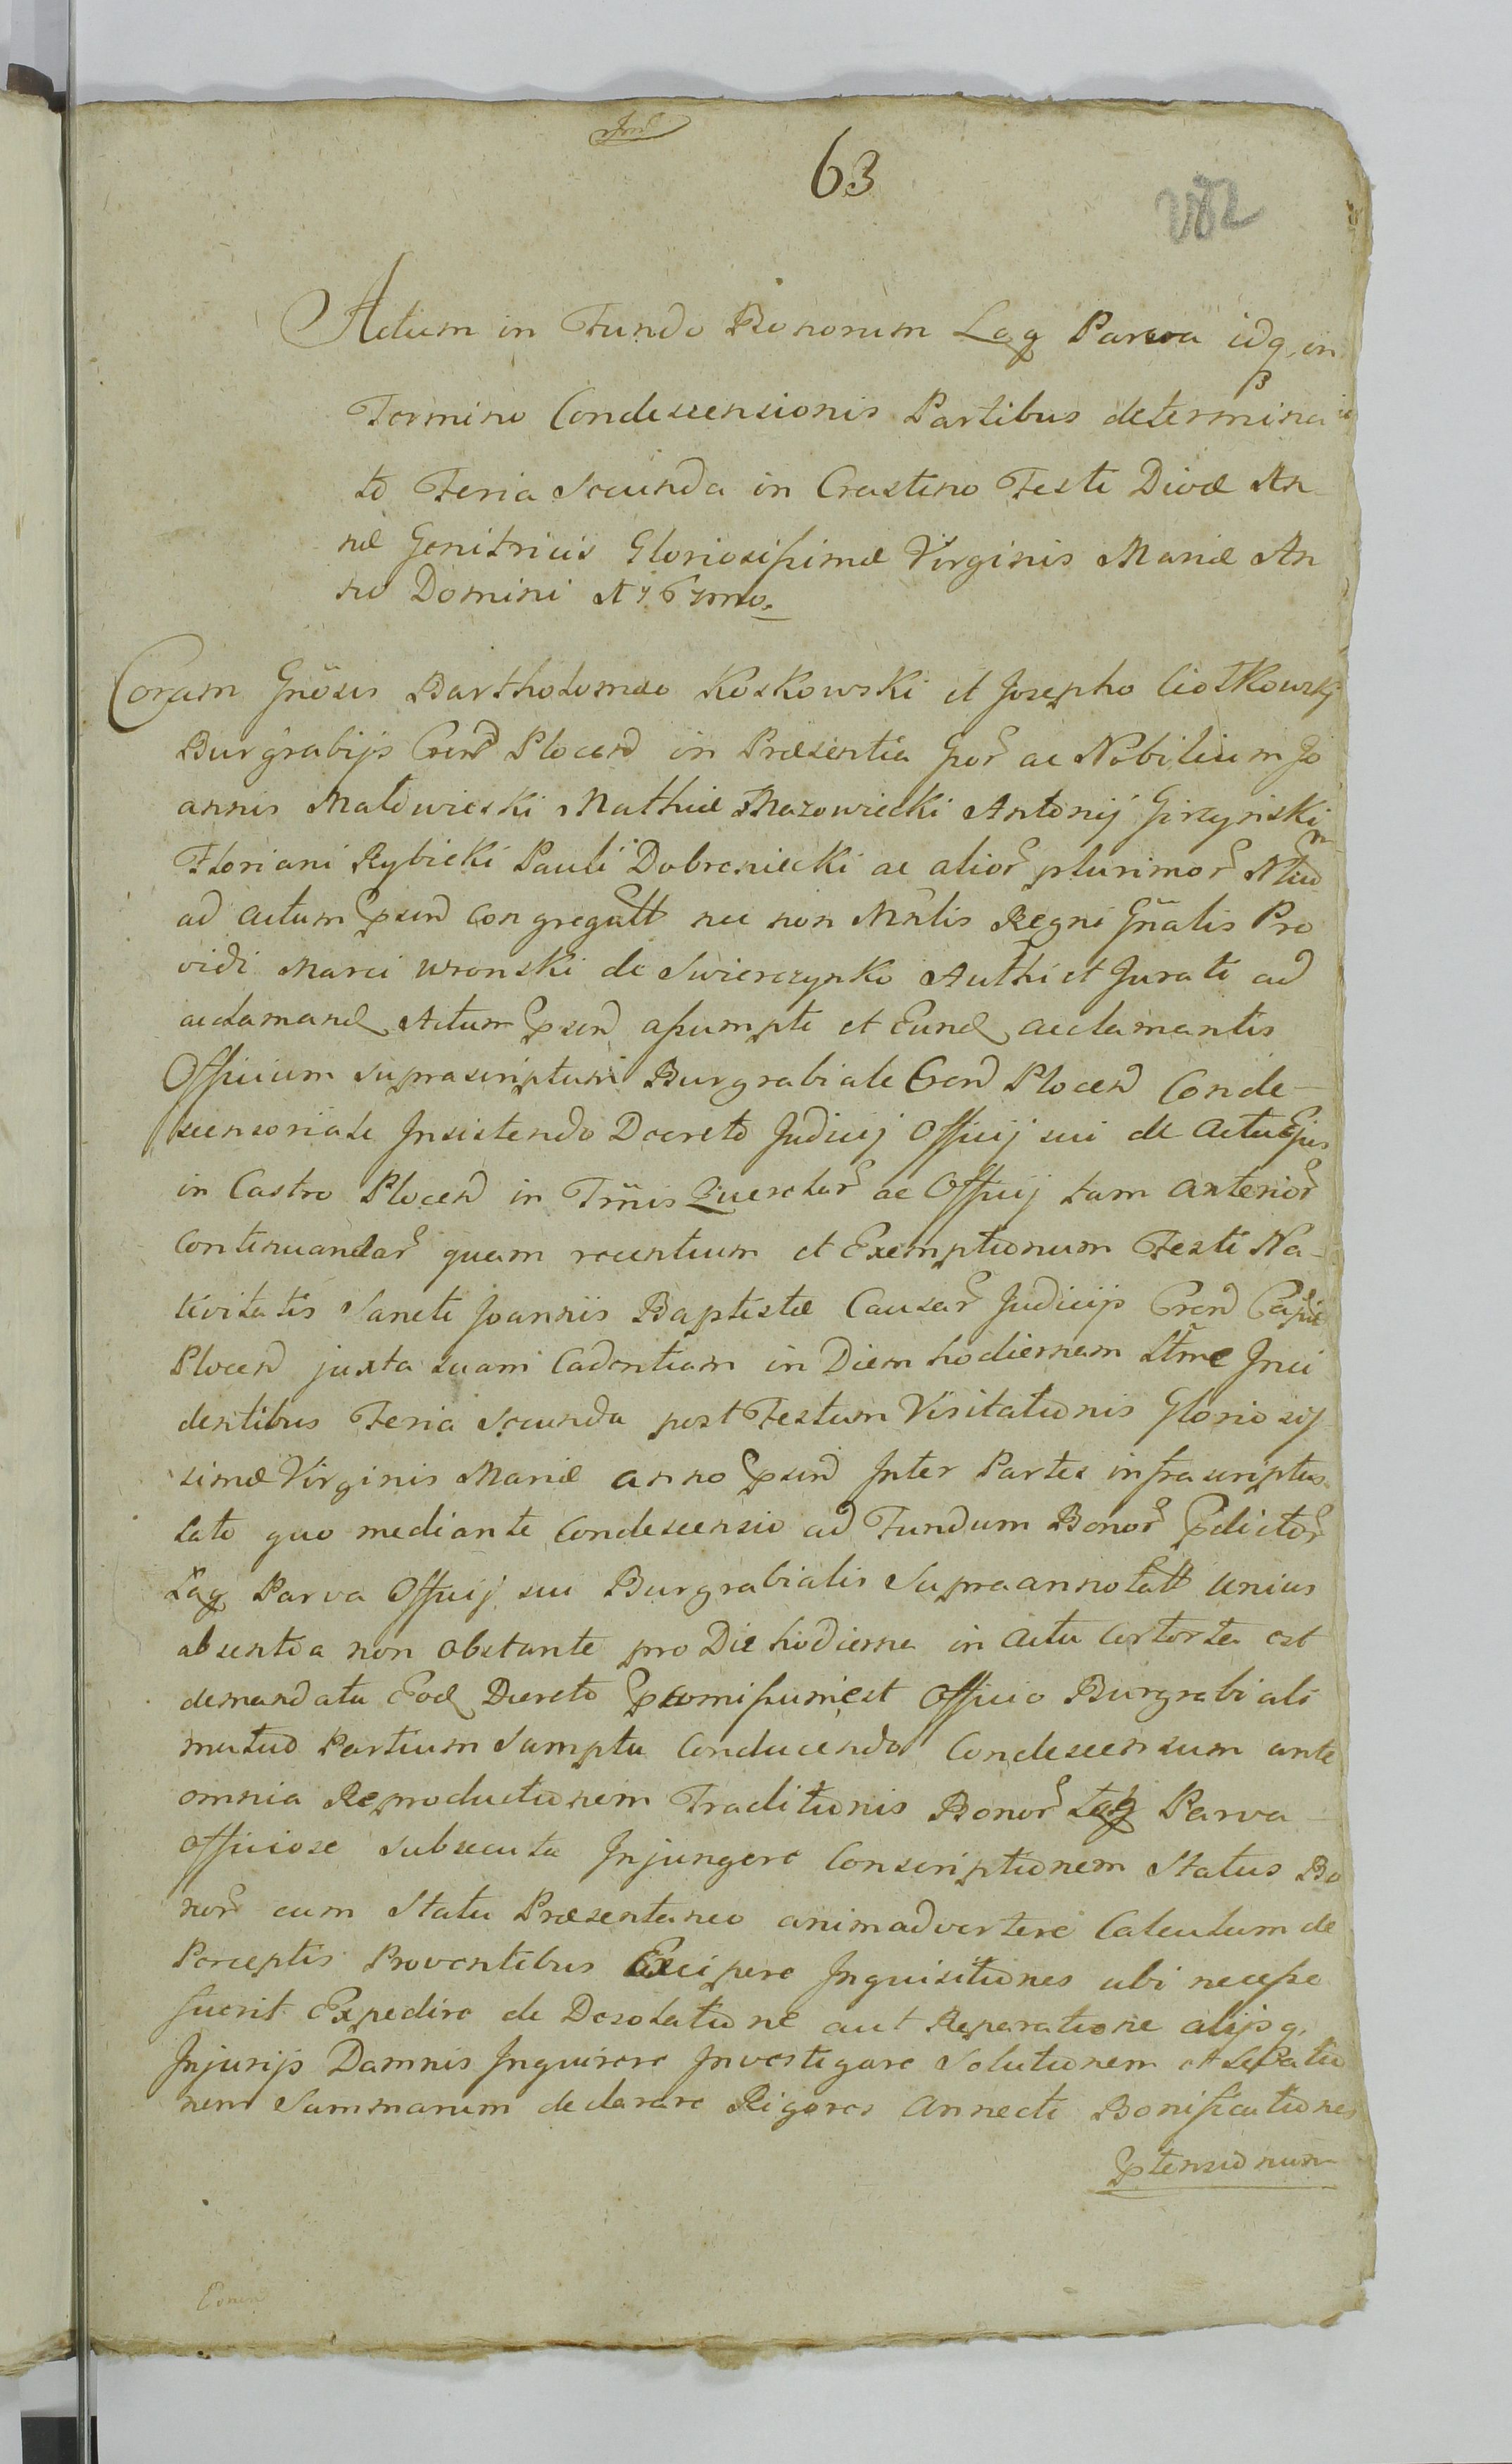 63
Actum in Fundo Bonorum Łąg Parva idq, in
Termino Condescensionis Partibus determina
to Feria Secunda in Crastino Festi Divæ An
næ Genitricis Gloriosissimæ Virginis Mariæ An
no Domini
Coram Gnosis Bartholomæo Koskowski et Josepho Ciołkowskj
Burgrabijs Cren Plocen in Præsentia Gnor ac Nobilium Jo
annis Malowieski Mathiæ Mazowiecki Antonij Girzyński
Floriani Rybicki Pauli Dobrzniecki ac alior plurimor
ad actum pnsen congregatt nec non Mnlis Regni Gnalis Pro
vidi Marci Wronski de Swierczynko Authi et Jurati ad
acclamand Actum pnsen assumpti et Eund acclamantis
Officium suprascriptum Burgrabiale Cren Plocen Conde-
scensoriale Insistendo Decreto Judicij Officij sui de Actu Ejus
in Castro Plocen in Trnis Querelar ac Officij tam anterior
continuandar quam recentium et Exemptionum Festi Na-
tivitatis Sancti Joannis Baptistæ Causar Judicijs Cren
Plocen juxta suam Cadentiam in Diem hodiernam Inci
dentibus Feria Secunda post Festum Visitationis Gloriosis
simæ Virginis Mariæ anno pnsen Inter Partes infrascriptas
lato quo mediante Condescensio ad Fundum Bonor pdictor
Łąg Parva Officij sui Burgrabialis Supraannotatt unius
absentia non obstante pro Die hodierna in actu est
demandata Eod Decreto est Officio Burgrabiali
mutuo Partium Sumptu Conducendo Condescensum ante
omnia Reproductionem Traditionis Bonor Łąg Parva
officiose subsecuta Injungere Conscriptionem Status Bo
nor cum Statu Præsentaneo animadvertere Calculum de
Perceptis Proventibus Excipere Inquisitiones ubi necesse
fuerit Expedire de Desolatione aut Reparatione alijsq,
Injurijs Damnis Inquirere Investigare Solutionem et
nem Summarum declarare Rigores Annecti Bonificationes
ptensionum